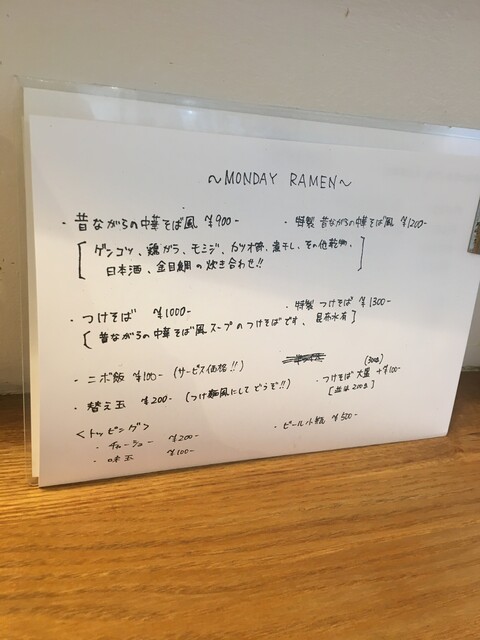 ～MONDAY RAMEN～
・昔ながらの中華そば風 ¥900-
・特製 昔ながらの中華そば風 ¥1200-
[ゲンコツ、鶏ガラ、モミジ、カツオ節、煮干し、その他乾物、
日本酒、金目鯛の炊き合わせ!!]
・つけそば ¥1000-
・特製 つけそば ¥1300-
[昔ながらの中華そば風スープのつけそばです、昆布水有]
・ニボ飯 ¥100- (サービス価格!!)
・つけそば 大盛 +¥100-
(300g)
[並は200g]
・替え玉 ¥200- (つけ麺風にしてどうぞ!!)
<トッピング>
・チャーシュー ¥200-
・味玉 ¥100-
・ビール小瓶 ¥500-